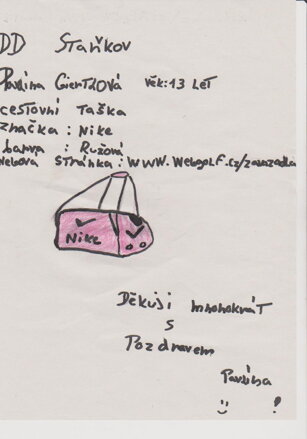 DD Staňkov
Pavlína Giertlová Věk: 13 LET
cestovní Taška
značka : Nike
barva : Růžová
Webová stránka : www.Webgolf.cz/zavazadla
Nike
Děkuji mnohokrát
s
Pozdravem
Pavlína
!